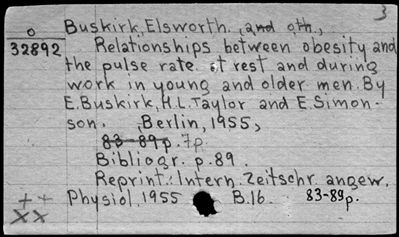 3
o Buskirk, Elsworth. , and oth.,
32892 Relationships between obesity and
the pulse rate at rest and during
work in young and older men. By
E. Buskirk, H. L. Taylor and E. Simon-
son. Berlin, 1955,
83-89p. 7p.
Bibliogr. p. 89.
Reprint: Intern. Zeitschr. angew.
++ Physiol. 1955 B.16. 83-89p.
XX